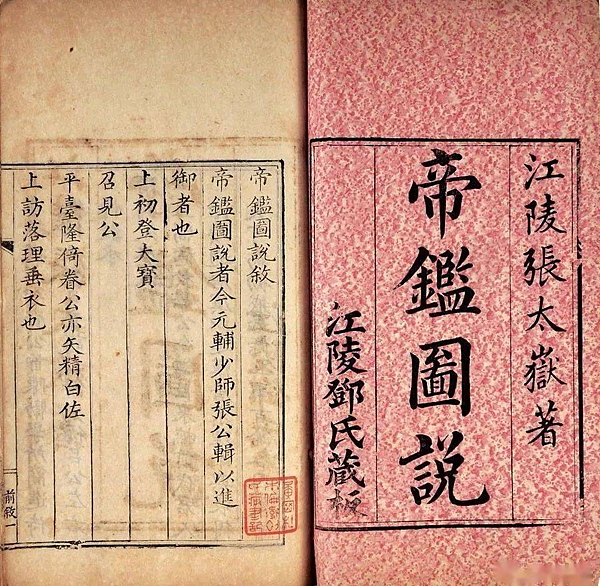 江陵張太嶽著
帝鑑圖說
江陵鄧氏藏板
帝鑑圖說敘
帝鑑圖說者今元輔少師張公輯以進
御者也
上初登大寶
召見公
平臺隆倚眷公亦矢精白佐
上訪落理垂衣也
前敘一